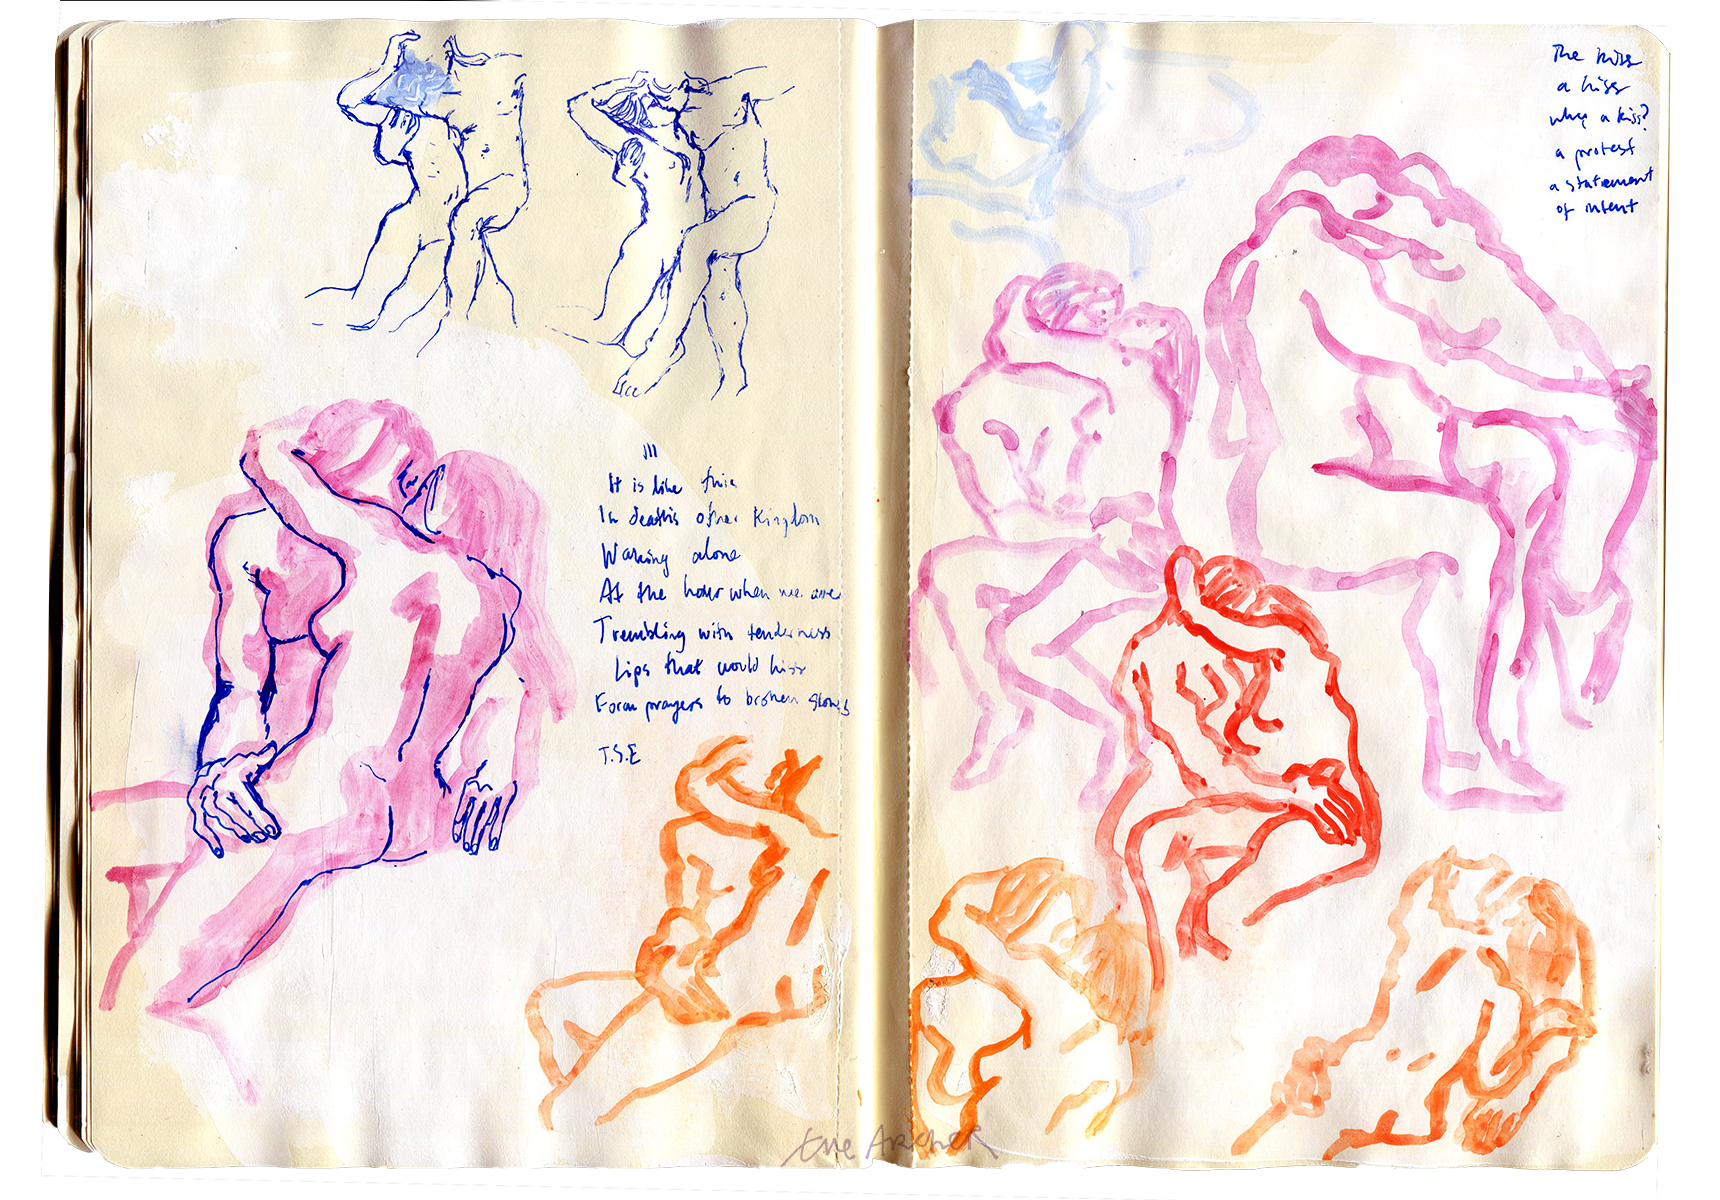 III
It is like this
In death's other Kingdom
Waking alone
At the hour when we are
Trembling with tenderness
Lips that would kiss
Form prayers to broken stones
T.S.E
The kiss
a kiss
why a kiss?
a protest
a statement
of intent
Eve Archer